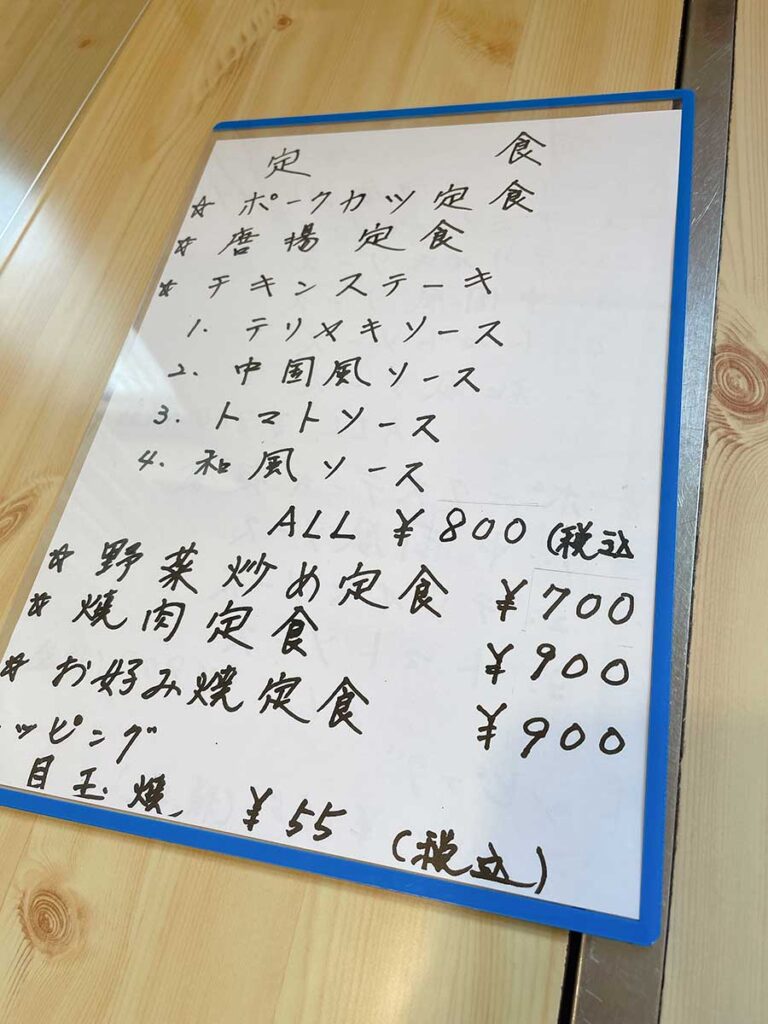 定食
☆ ポークカツ定食
☆ 唐揚定食
☆ チキンステーキ
1. テリヤキソース
2. 中国風ソース
3. トマトソース
4. 和風ソース
ALL ¥800 (税込
☆ 野菜炒め定食 ¥700
☆ 焼肉定食 ¥900
☆ お好み焼定食 ¥900
ッピング
目玉焼 ¥55 (税込)